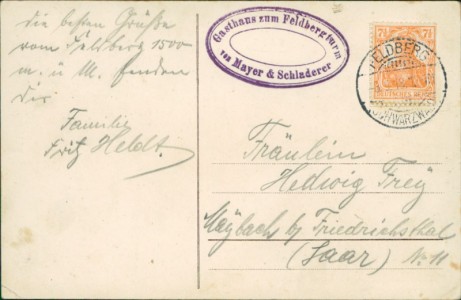 die besten Grüße
vom Feldberg 1500
m. ü. M. senden
die
Familie
Fritz Heldt.
Gasthaus zum Feldbergturm
von Mayer & Schladerer
7½ 7½
DEUTSCHES REICH
FELDBERG
(SCHWARZWALD)
Fräulein
Hedwig Frey
Maybach by Friedrichsthal
(Saar) No 11